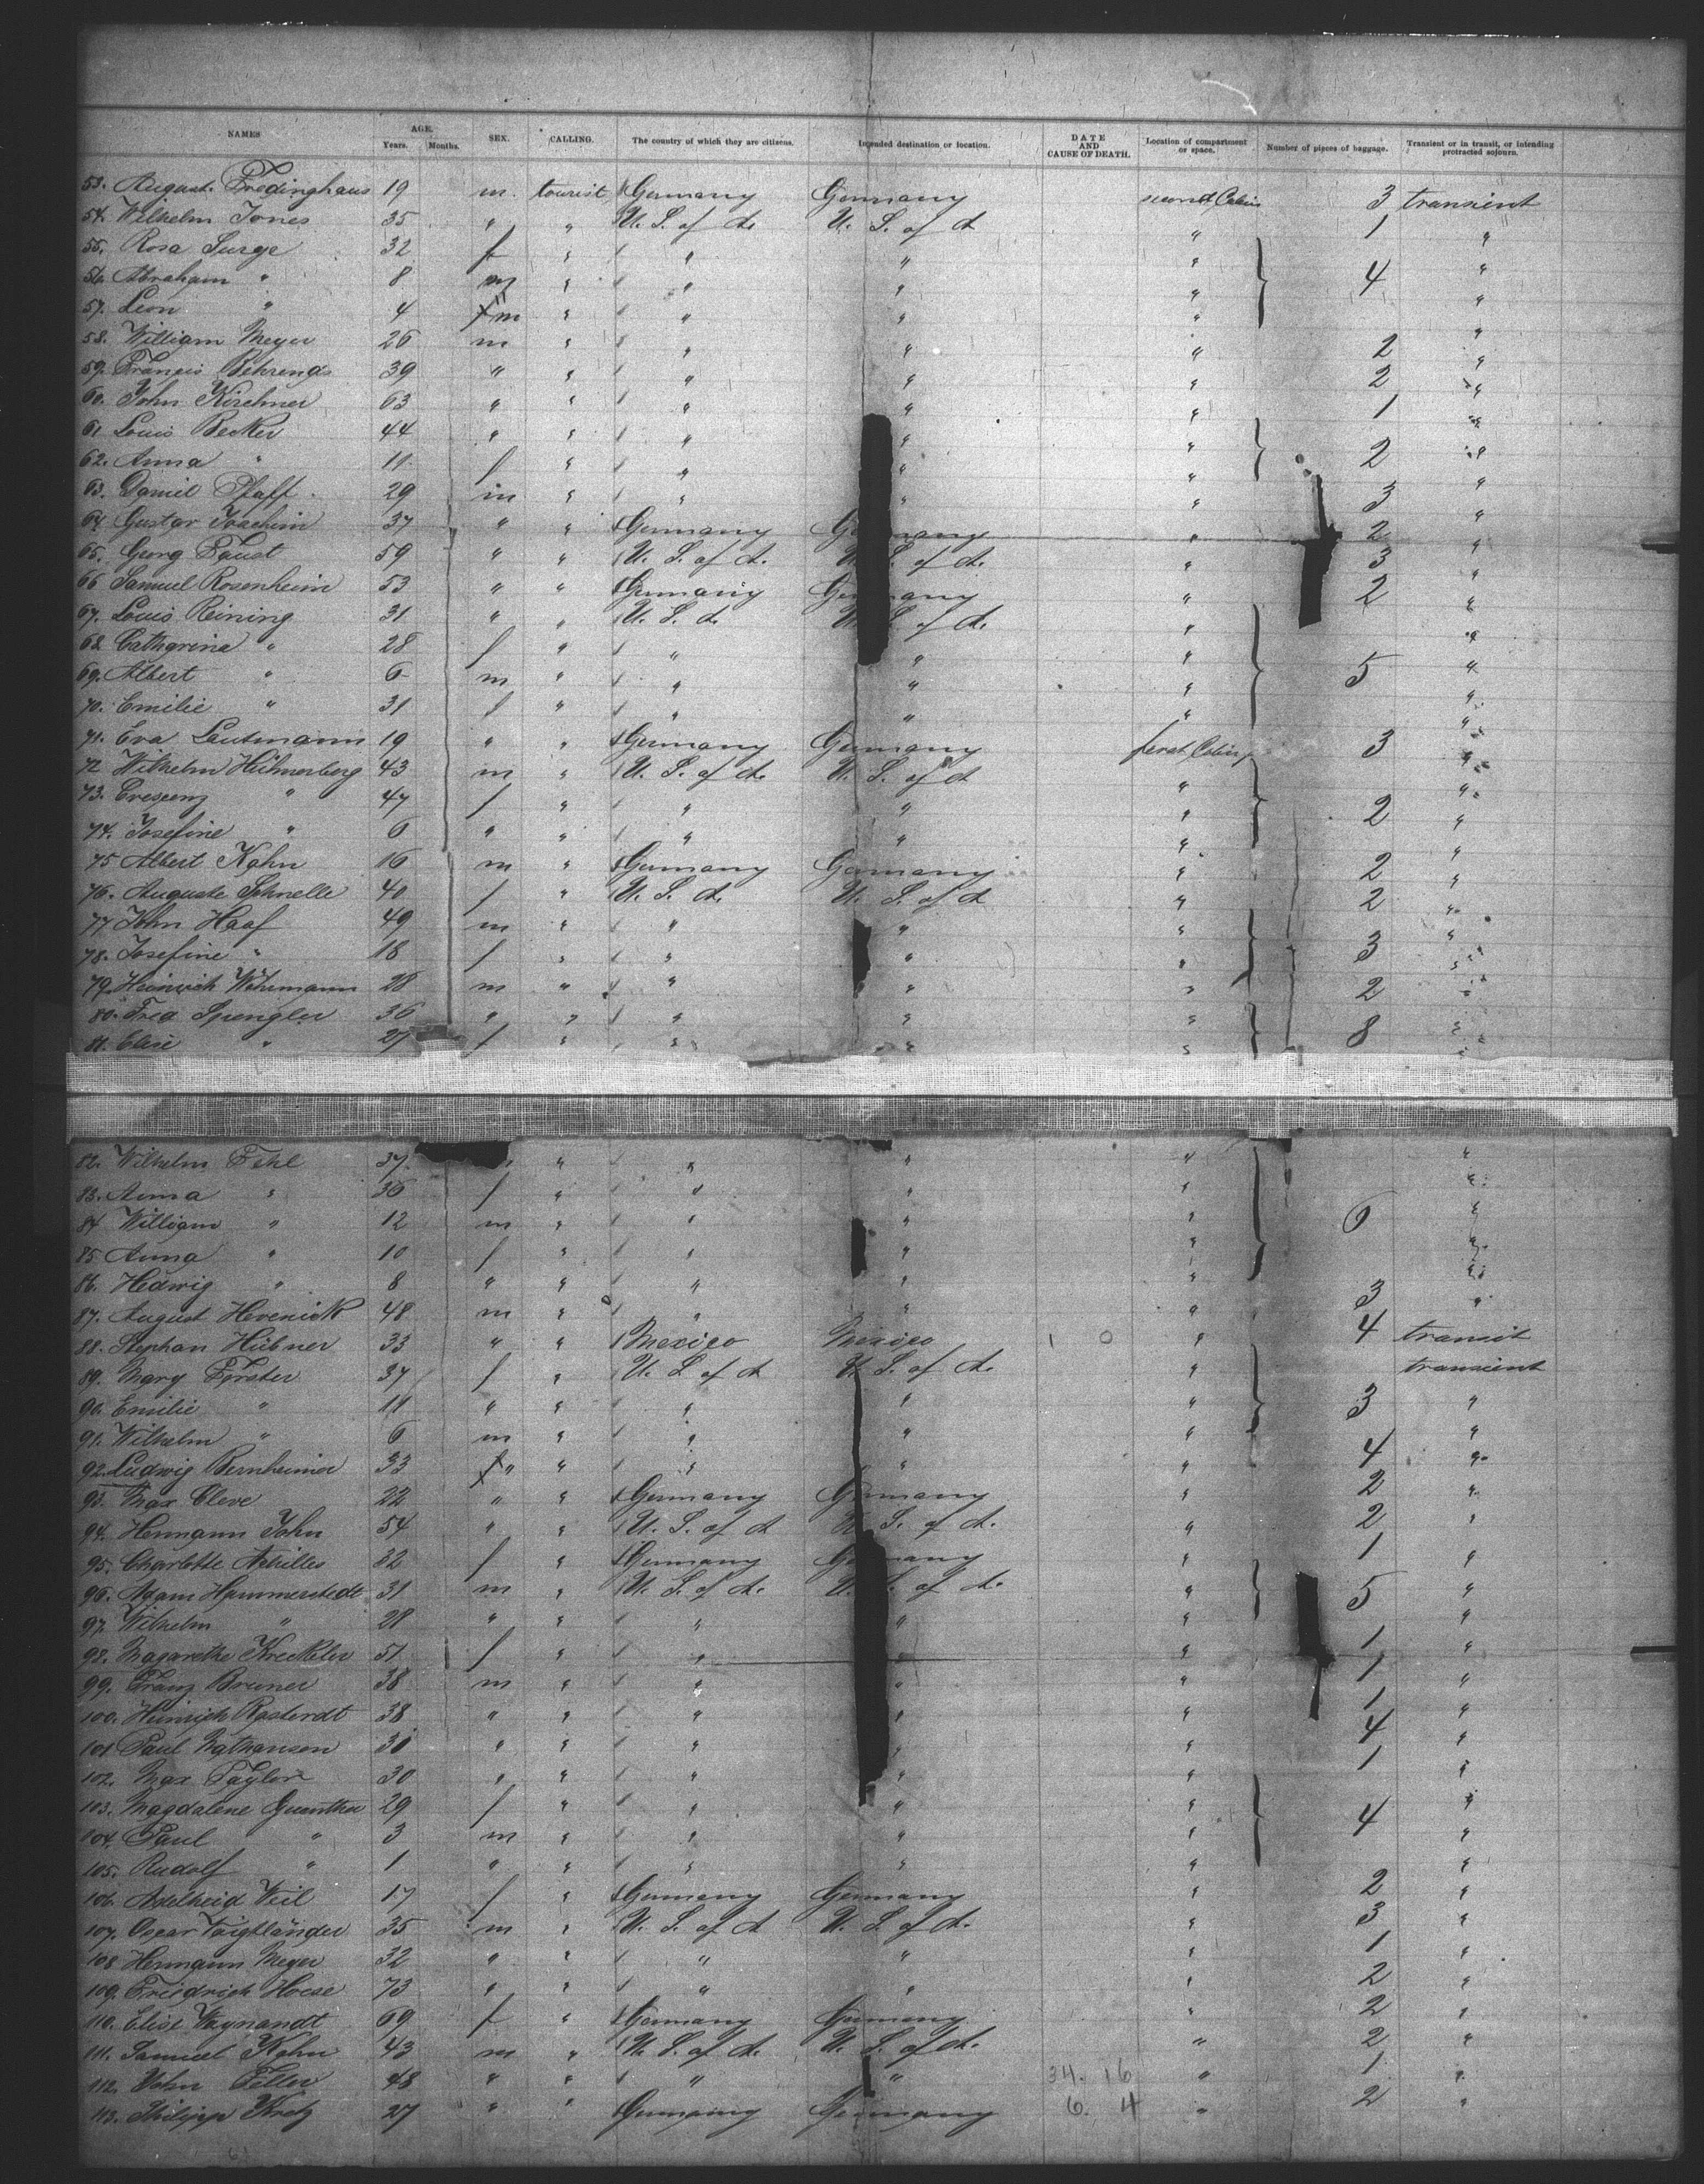 NAMES AGE. Years. Months. SEX. CALLING. The country of which they are citizens. Intended destination or location. DATE AND CAUSE OF DEATH. Location of compartment or space. Number of pieces of baggage. Transient or in transit, or intending protracted sojourn.
53. August Fredinghaus 19 m. tourist Germany Germany second Cabin 3 transient
54. Wilhelm Jones 35 " " U. S. of A. U. S. of A " 1 "
55. Rosa Surge 32 f " " " " "
56. Abraham " 8 m " " " " 4 "
57. Leon " 4 m " " " " "
58. William Meyer 26 m " " " " 2 "
59. Francis Behrends 39 " " " " " 2 "
60. John Kirchner 63 " " " " " 1 "
61 Louis Becker 44 " " " " " "
62. Anna " 11 f " " " " 2 "
63. Daniel Pfaff 29 m " " " " 3 "
64 Gustav Joachim 37 " " Germany Germany " 2 "
65. Georg Faust 59 " " U. S. of A. U. S. of A. " 3 "
66 Samuel Rosenheim 53 " " Germany Germany " 2 "
67. Louis Reining 31 " " U. S. A. U. S. of A. " "
68 Catharina " 28 f " " " " "
69. Albert " 6 m " " " " 5 "
70. Emilie " 31 f " " " " "
71. Eva Lautmann 19 " " Germany Germany first Cabin 3 "
72 Wilhelm Hühnerberg 43 m " U. S. of A. U. S. of A " "
73. Crescenz " 47 f " " " " 2 "
74. Josefine " 6 " " " " " "
75 Albert Kahn 16 m " Germany Germany " 2 "
76. Auguste Schnelle 40 f " U. S. A. U. S. of A " 2 "
77 John Haaf 49 m " " " " "
78. Josefine " 18 f " " " " 3 "
79. Heinrich Wehrmann 28 m " " " " 2 "
80. Fred Spengler 36 " " " " " "
81. Elise " 27 f " " " " 8 "
82. Wilhelm Fehl 37 " " " " "
83. Anna " 36 f " " " " "
84 William " 12 m " " " " 6 "
85 Anna " 10 f " " " " "
86. Hedwig " 8 " " " " " "
87. August Hevenick 48 m " " " " 3 "
88. Stephan Hübner 33 " " Mexico Mexico 1 0 " 4 transit
89. Mary Förster 37 f " U. S. of A U. S. of A. " transient
90. Emilie " 11 " " " " " 3 "
91. Wilhelm " 6 m " " " " "
92. Ludwig Bernheimer 33 " " " " " 4 "
93. Max Cleve 22 " " Germany Germany " 2 "
94. Hermann John 54 " " U. S. of A U. S. of A. " 2 "
95. Charlotte Achilles 32 f " Germany Germany " 1 "
96. Adam Hammerstedt 31 m " U. S. of A. U. S. of A. " 5 "
97. Wilhelm " 28 " " " " " "
98. Magarethe Kreckler 51 f " " " " 1 "
99. Franz Bruner 38 m " " " " 1 "
100. Heinrich Rasterdt 38 " " " " " 1 "
101 Paul Nathanson 30 " " " " " 4 "
102. Max Taylor 30 " " " " " 1 "
103. Magdalene Guenther 29 f " " " " "
104. Paul " 3 m " " " " 4 "
105. Rudolf " 1 " " " " " "
106. Adelheid Weil 17 f " Germany Germany " 2 "
107. Oscar Voigtländer 35 m " U. S. of A U. S. of A. " 3 "
108 Hermann Meyer 32 " " " " " 1 "
109. Friedrich Hoese 73 " " " " " 2 "
110. Elise Weynandt 69 f " Germany Germany " 2 "
111. Samuel Kahn 43 m " U. S. of A. U. S. of A. " 2 "
112. John Feller 48 " " " " 34. 16 " 1 "
113. Philipp Kretz 27 " " Germany Germany 6. 4 " 2 "